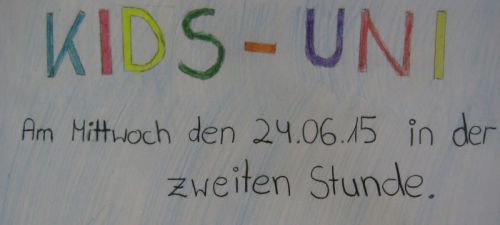 KIDS - UNI
Am Mittwoch den 24.06.15 in der
zweiten Stunde.